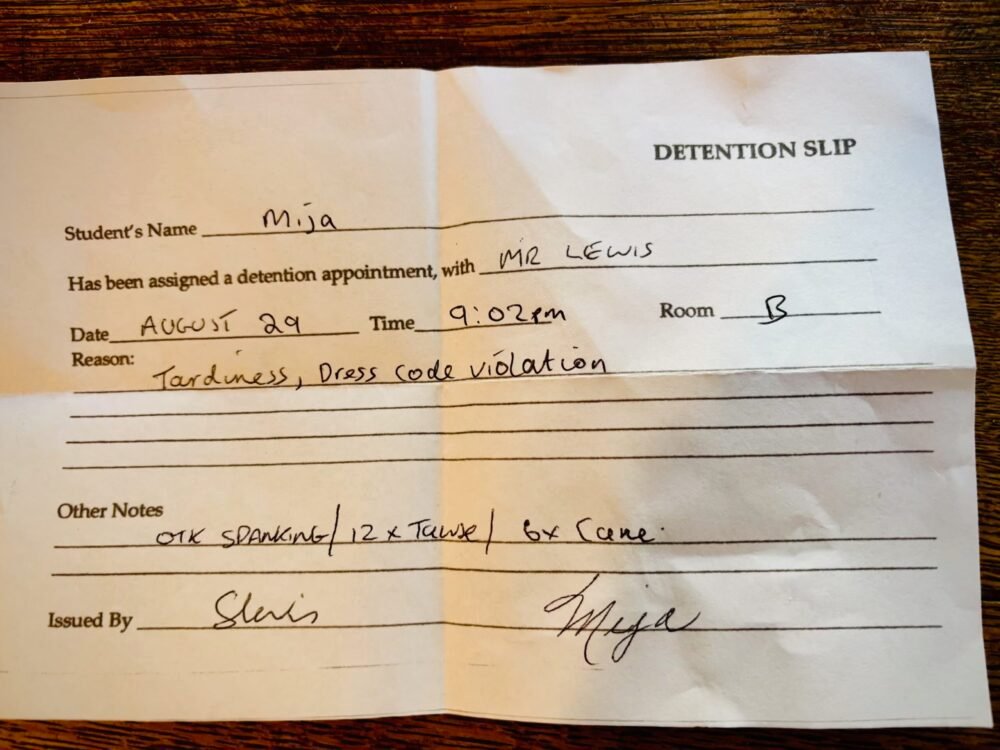 DETENTION SLIP
Student's Name Mija
Has been assigned a detention appointment, with MR LEWIS
Date AUGUST 29 Time 9:02pm Room B
Reason: Tardiness, Dress code violation
Other Notes
OTK SPANKING/ 12 x Tawse/ 6x Cane.
Issued By Slewis Mija